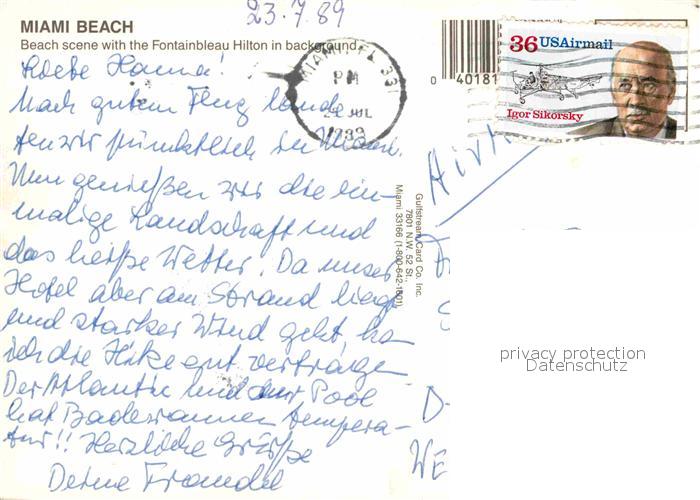 23.7.89
MIAMI BEACH
Beach scene with the Fontainbleau Hilton in background
Liebe Hanna!
Nach gutem Flug lande
ten wir pünktlich in Miami.
Nun genießen wir die ein-
malige Landschaft und
das heiße Wetter. Da unser
Hotel aber am Strand liegt
und starker Wind geht, ka
ich die Hitze gut vertragen
Der Atlantic und der Pool
hat Badewannentempera-
tur!! Herzliche Grüße
Deine
MIAMI, FL 331
PM
24 JUL
1989
0 40181
36 USAirmail
Igor Sikorsky
Gulfstream Card Co. Inc.
7801 N.W. 52 St.
Miami 33166 (1-800-642-1801)
D-
WE
privacy protection
Datenschutz